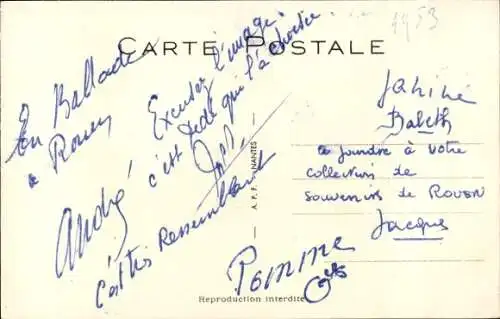 1953
CARTE POSTALE
En Ballade
à Rouen
André
Excusez l'image
c'est Dédé qui l'a choisie
C'est très Ressemblant
Pomme
A. P. F. NANTES
Janine
Babeth
a joindre à votre
collection de
souvenirs de ROUEN
Jacques
Reproduction interdite